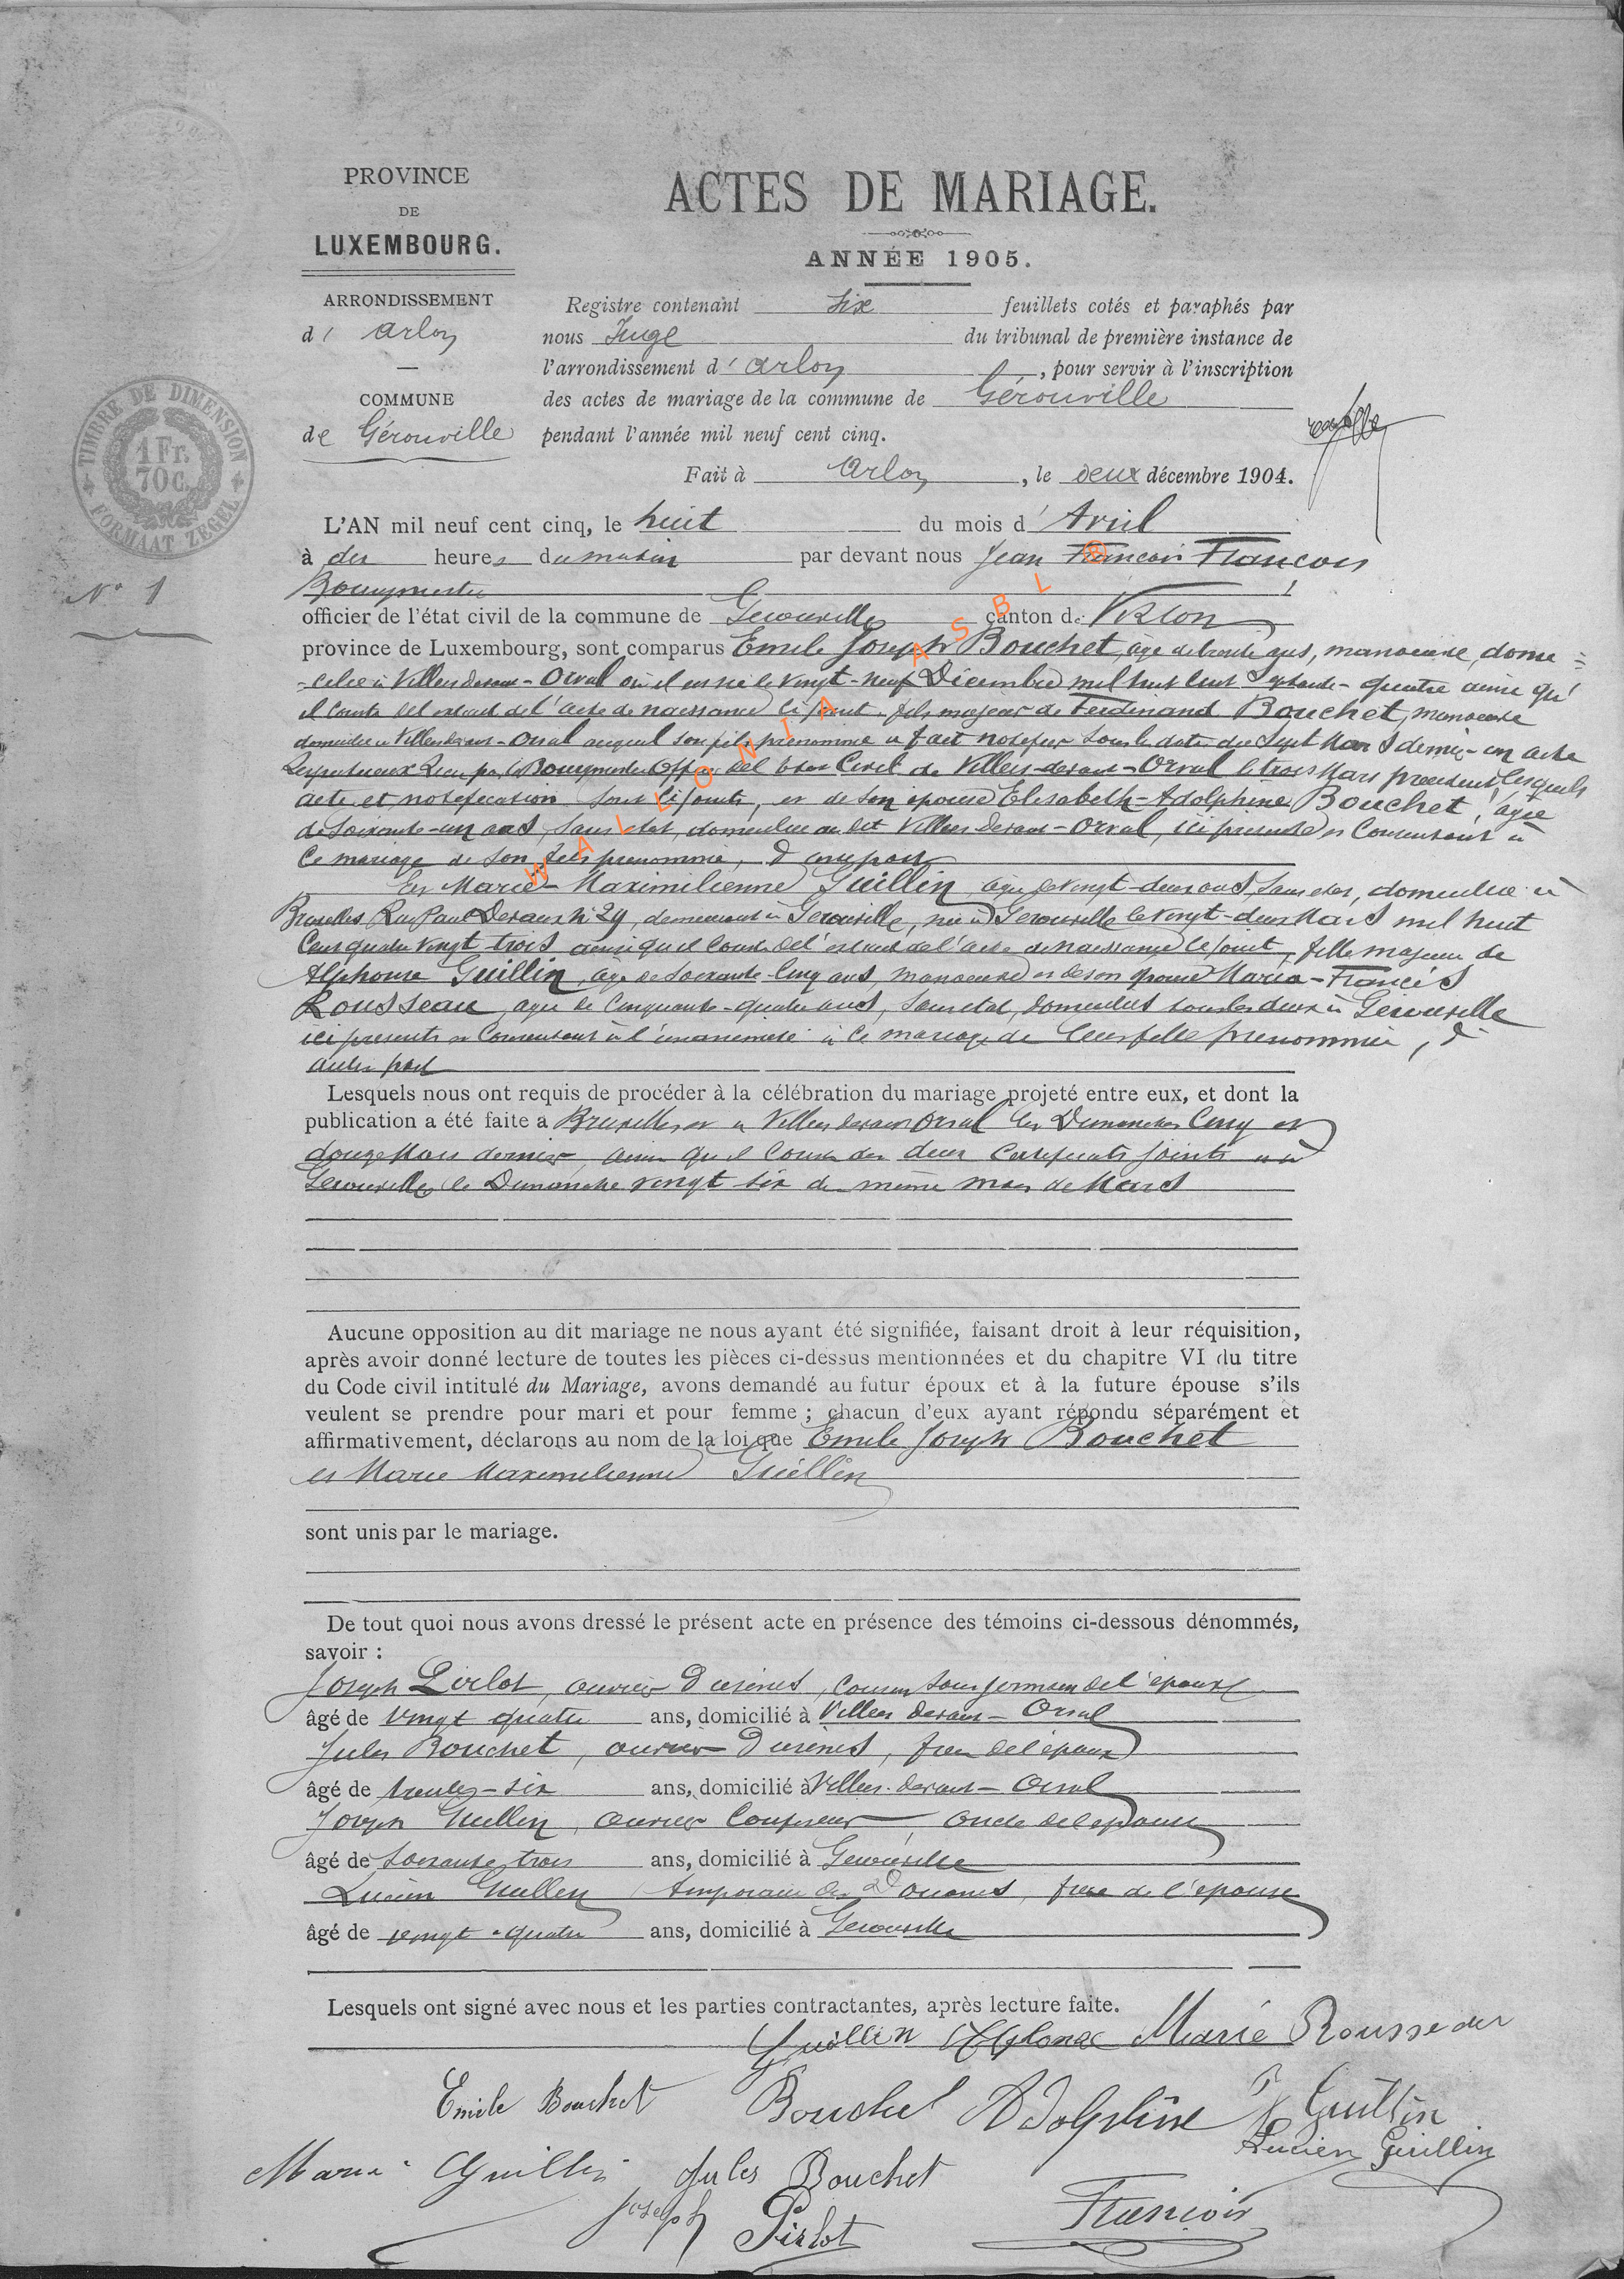 PROVINCE
DE
LUXEMBOURG.
ACTES DE MARIAGE.
ANNÉE 1905.
ARRONDISSEMENT
d' Arlon
COMMUNE
de Gérouville
Registre contenant six feuillets cotés et paraphés par
nous Juge du tribunal de première instance de
l'arrondissement d' Arlon, pour servir à l'inscription
des actes de mariage de la commune de Gérouville
pendant l'année mil neuf cent cinq.
Fait à Arlon, le deux décembre 1904.
TIMBRE DE DIMENSION
1 Fr.
70 c.
FORMAAT ZEGEL
N° 1
L'AN mil neuf cent cinq, le huit du mois d' Avril
à dix heures du matin par devant nous Jean François François
Bourgmestre
officier de l'état civil de la commune de Gérouville canton de Virton
province de Luxembourg, sont comparus Emile Joseph Bouchet, âgé de trente ans, manoeuvre, domi-
-cilié à Villers devant-Orval où il est né le vingt-neuf Décembre mil huit cent septante-quatre ainsi qu'
il conste de l'extrait de l'acte de naissance ci joint, fils majeur de Ferdinand Bouchet, manoeuvre
domicilié à Villers devant-Orval auquel son fils prénommé a fait notifier sous la date du sept Mars dernier un acte
respectueux reçu par le Bourgmestre Officier de l'état Civil de Villers-devant-Orval le trois Mars précédent, lesquels
acte et notification sont ci joints, et de son épouse Elisabeth-Adolphine Bouchet, âgée
de soixante-un ans, sans état, domiciliée au dit Villers devant-Orval, ici présente et consentant à
ce mariage de son fils prénommé, d'une part
Et Marie-Maximilienne Guillin âgée de vingt-deux ans, sans état, domiciliée à
Bruxelles Rue Paul Devaux N° 29, demeurant à Gérouville, née à Gérouville le vingt-deux Mars mil huit
cent quatre vingt trois ainsi qu'il conste de l'extrait de l'acte de naissance ci joint, fille majeure de
Alphonse Guillin, âgé de soixante-cinq ans, manoeuvre et de son épouse Maria-Francis
Rousseau, âgée de cinquante-quatre ans, sans état, domiciliés tous les deux à Gérouville
ici présents et consentant à ce mariage de leur fille prénommée, d'
autre part
Lesquels nous ont requis de procéder à la célébration du mariage projeté entre eux, et dont la
publication a été faite à Bruxelles et à Villers devant Orval les Dimanches cinq et
douze Mars dernier, ainsi qu'il conste des deux certificats joints et à
Gérouville le Dimanche vingt six du même mois de Mars
Aucune opposition au dit mariage ne nous ayant été signifiée, faisant droit à leur réquisition,
après avoir donné lecture de toutes les pièces ci-dessus mentionnées et du chapitre VI du titre
du Code civil intitulé du Mariage, avons demandé au futur époux et à la future épouse s'ils
veulent se prendre pour mari et pour femme ; chacun d'eux ayant répondu séparément et
affirmativement, déclarons au nom de la loi que Emile Joseph Bouchet
et Marie Maximilienne Guillin
sont unis par le mariage.
De tout quoi nous avons dressé le présent acte en présence des témoins ci-dessous dénommés,
savoir :
Joseph Pirlot, ouvrier d'usines, cousin sous germain de l'époux
âgé de vingt quatre ans, domicilié à Villers devant-Orval
Jules Bouchet, ouvrier d'usines, frère de l'époux
âgé de trente-six ans, domicilié à Villers-devant-Orval
Joseph Guillin, ouvrier, oncle de l'épouse
âgé de soixante trois ans, domicilié à Gérouville
Lucien Guillin, temporaire des Douanes, frère de l'épouse
âgé de vingt-quatre ans, domicilié à Gérouville
Lesquels ont signé avec nous et les parties contractantes, après lecture faite.
Guillin Alphonse Marie Rousseau
Emile Bouchet Bouchet Adolphine J Guillin
Lucien Guillin
Marie Guillin Jules Bouchet
Joseph Pirlot François
WALLONIA ASBL ®